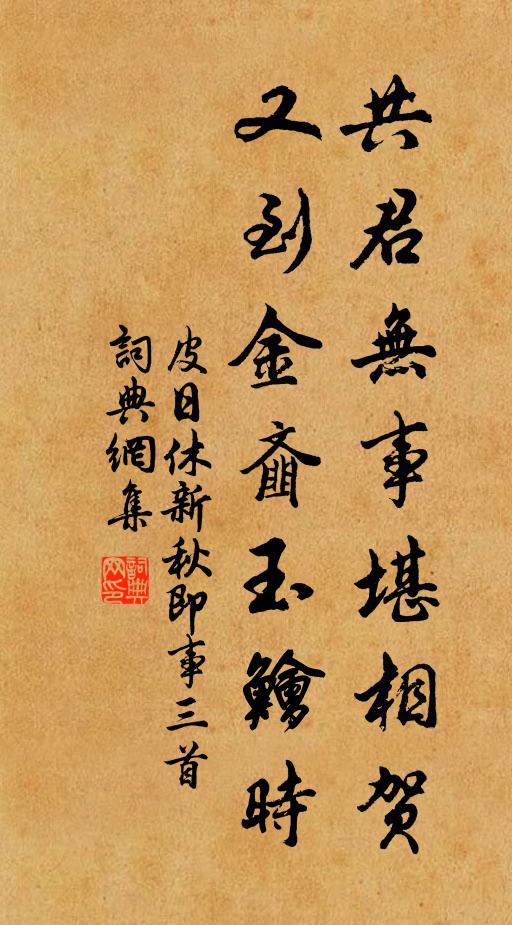 共君無事堪相賀
又到金齑玉鱠時
皮日休新秋即事三首
詞典網集
詞典网印